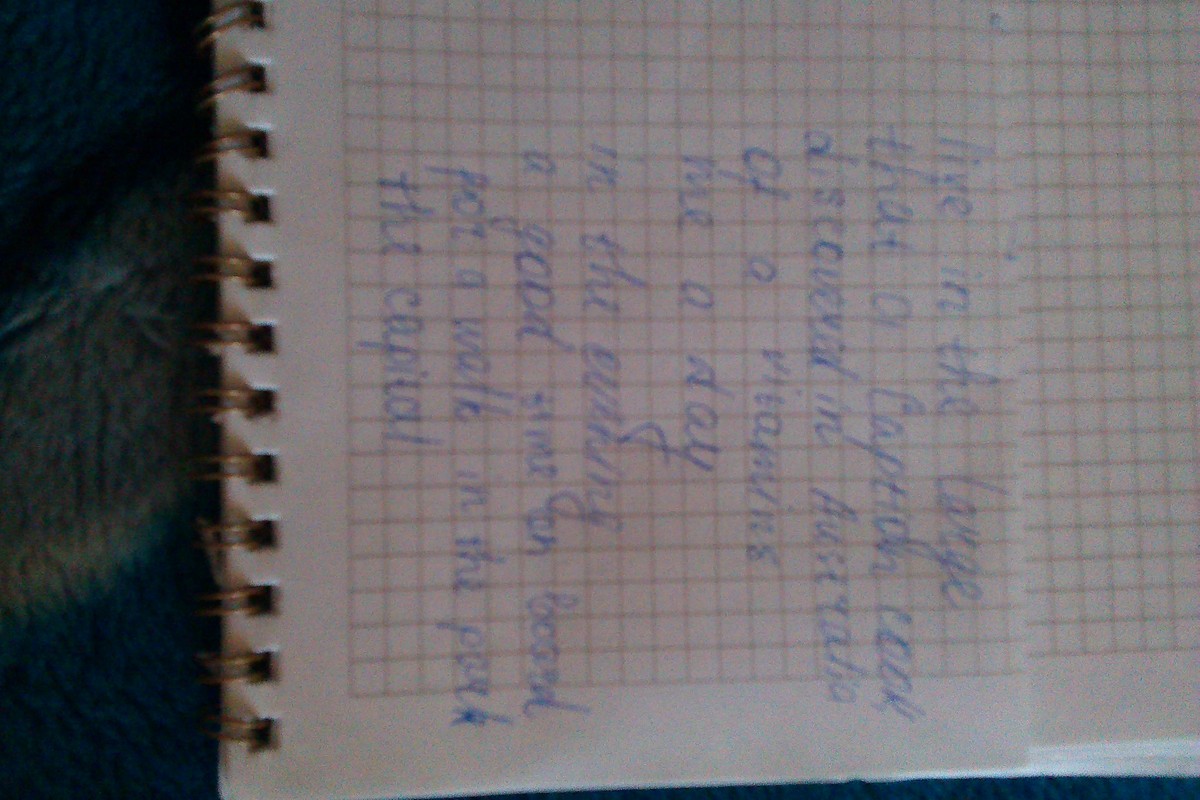 live in the large
that a Captain cook
discoverd in Australia
of a vitamins
me a day
in the evening
a good time on board
for a walk in the park
the capital